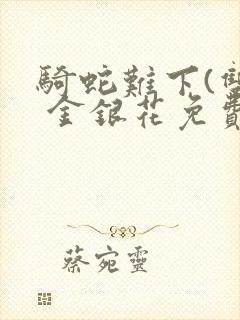 騎蛇難下(雙
金銀花免費
蔡宛靈